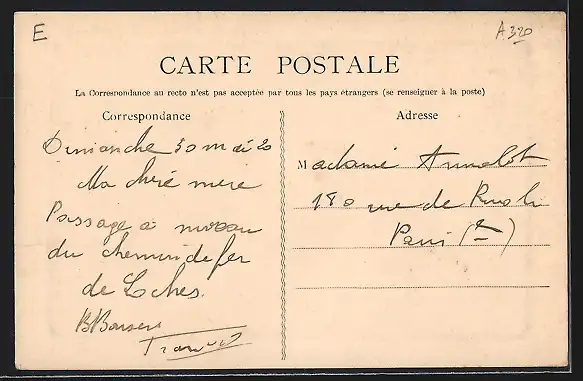 E
A 320
CARTE POSTALE
La Correspondance au recto n'est pas acceptée par tous les pays étrangers (se renseigner à la poste)
Correspondance
Dimanche 30 mai 20
Ma chère mère
Passage à niveau
du chemin de fer
de Loches.
B Baisers
Adresse
Madame
180 rue de
Paris